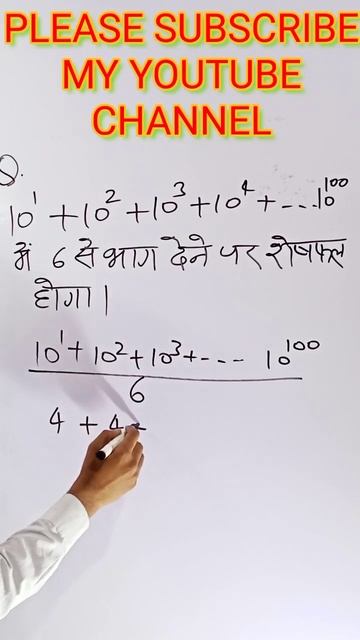 PLEASE SUBSCRIBE
MY YOUTUBE
CHANNEL
Q.
10¹ + 10² + 10³ + 10⁴ + --- 10¹⁰⁰
में 6 से भाग देने पर शेषफल
होगा।
10¹ + 10² + 10³ + --- 10¹⁰⁰
6
4 + 4